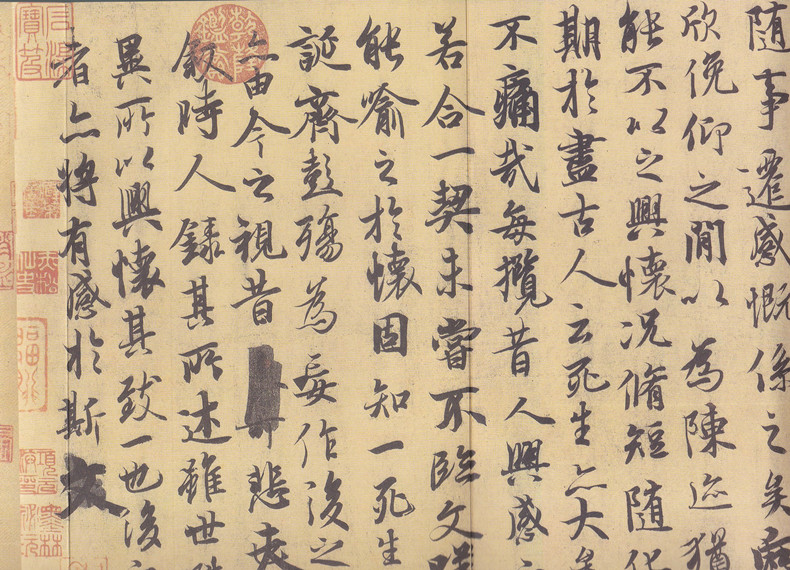 隨事遷感慨係之矣
欣俛仰之閒以為陳迹猶
能不以之興懷況脩短隨化
期於盡古人云死生亦大
不痛哉每攬昔人興感
若合一契未嘗不臨文
能喻之於懷固知一死生
誕齊彭殤為妄作後之
亦由今之視昔悲夫
叙時人錄其所述雖世
異所以興懷其致一也後
者亦將有感於斯文